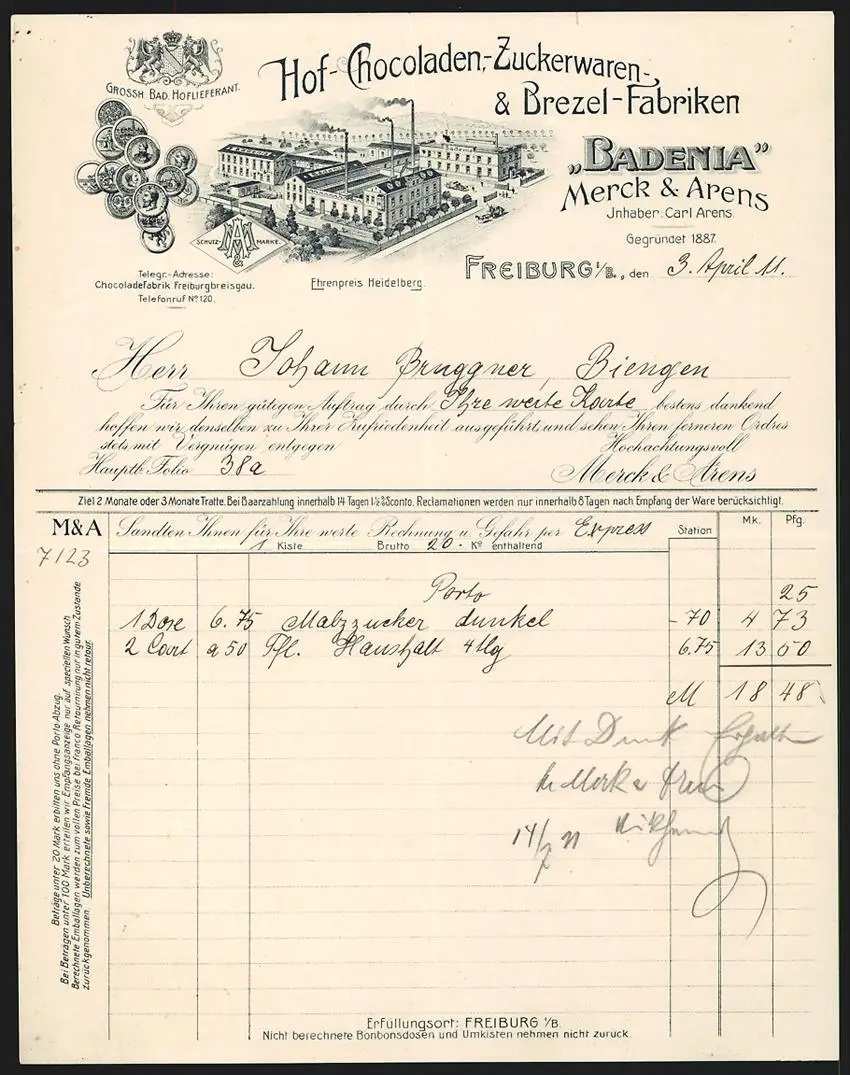 GROSSH. BAD. HOFLIEFERANT.
Hof-Chocoladen,-Zuckerwaren-
& Brezel-Fabriken
„BADENIA”
Merck & Arens
Jnhaber: Carl Arens
Gegründet 1887.
SCHUTZ- MARKE.
Telegr.-Adresse:
Chocoladefabrik Freiburgbreisgau.
Telefonruf No 120.
Ehrenpreis Heidelberg.
FREIBURG i/B., den 3. April 11.
Herr Johann Bruggner, Biengen
Für Ihren gütigen Auftrag durch Ihre werte Karte bestens dankend
hoffen wir denselben zu Ihrer Zufriedenheit ausgeführt und sehen Ihren ferneren Ordres
stets mit Vergnügen entgegen
Hochachtungsvoll
Hauptb. Folio 38a
Merck & Arens
Ziel 2 Monate oder 3 Monate Tratte. Bei Baarzahlung innerhalb 14 Tagen 1½% Sconto. Reclamationen werden nur innerhalb 8 Tagen nach Empfang der Ware berücksichtigt.
M&A
7123
Sandten Ihnen für Ihre werte Rechnung u. Gefahr per Express
Station
Mk.
Pfg.
1 Kiste Brutto 20. Ko enthaltend
Porto 25
1 Dose 6.75 Malzzucker dunkel -70 4 73
2 Cart a 50 Tfl. Haushalt 6.75 13 50
M 18 48
Mit Dank Erhalten
Merk & Arens
14/7 11
Beträge unter 20 Mark erbitten uns ohne Porto-Abzug.
Bei Beträgen unter 100 Mark erteilen wir Empfangsanzeige nur auf speciellen Wunsch
Berechnete Emballagen werden zum vollen Preise bei franco Retournirung nur in gutem Zustande
zurückgenommen. Unberechnete sowie fremde Emballagen nehmen nicht retour.
Erfüllungsort: FREIBURG i/B.
Nicht berechnete Bonbonsdosen und Umkisten nehmen nicht zurück.